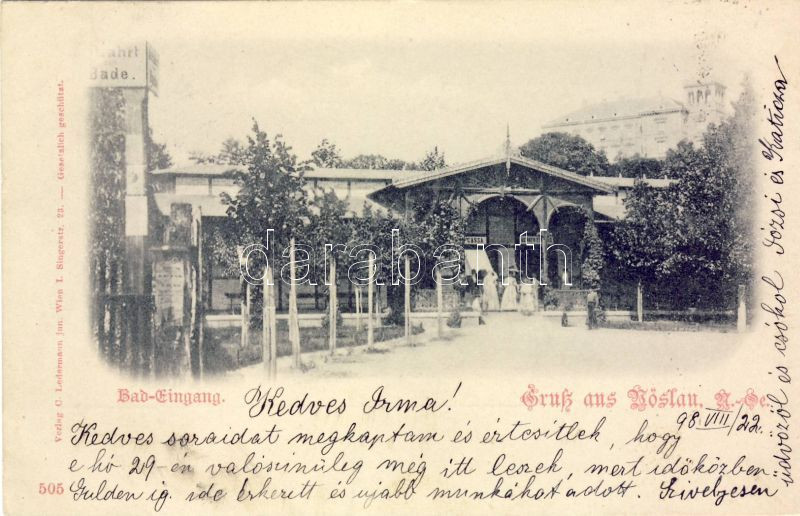 fahrt
Bade.
darabanth
Verlag C. Ledermann jun. Wien I. Singerstr. 23. — Gesetzlich geschützt.
Bad-Eingang.
Gruß aus Vöslau, N.-Oe.
Kedves Irma!
98 VIII/22.
Kedves soraidat megkaptam és értesitlek, hogy
e hó 29-én valósinüleg még itt leszek, mert időközben
505
Gulden ig. ide érkezett és ujabb munkákat adott. Szivélyesen
üdvözöl és csókol Józsi és Katicza